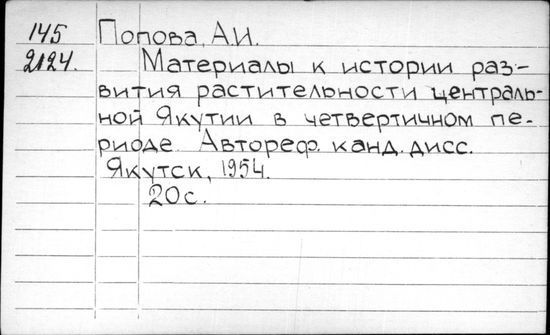 145 Попова, А.И.
2124. Материалы к истории раз-
вития растительности централь-
ной Якутии в четвертичном пе-
риоде. Автореф. канд. дисс.
Якутск, 1954.
20с.